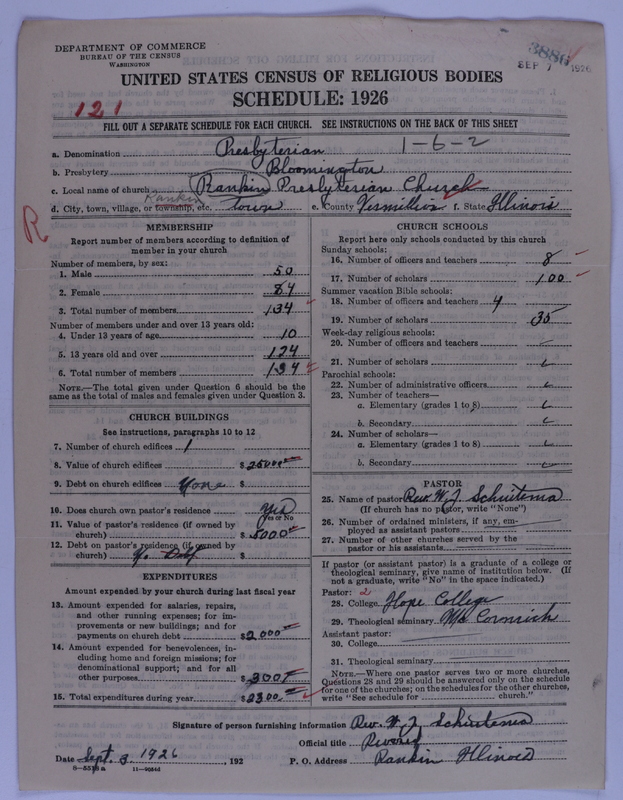 DEPARTMENT OF COMMERCE
BUREAU OF THE CENSUS
WASHINGTON
3886
SEP 7 1926
UNITED STATES CENSUS OF RELIGIOUS BODIES
SCHEDULE: 1926
121
FILL OUT A SEPARATE SCHEDULE FOR EACH CHURCH. SEE INSTRUCTIONS ON THE BACK OF THIS SHEET
1-6-2
a. Denomination Presbyterian
b. Presbytery Bloomington
c. Local name of church Rankin Presbyterian Church
Rankin
d. City, town, village, or township, etc. town e. County Vermillion f. State Illinois
R
MEMBERSHIP
Report number of members according to definition of member in your church
Number of members, by sex:
1. Male 50
2. Female 84
3. Total number of members 134
Number of members under and over 13 years old:
4. Under 13 years of age 10
5. 13 years old and over 124
6. Total number of members 134
NOTE.—The total given under Question 6 should be the same as the total of males and females given under Question 3.
CHURCH BUILDINGS
See instructions, paragraphs 10 to 12
7. Number of church edifices 1
8. Value of church edifices $ 25000
9. Debt on church edifices None $
10. Does church own pastor's residence Yes
Yes or No
11. Value of pastor's residence (if owned by church) $ 5000
12. Debt on pastor's residence (if owned by church) $
EXPENDITURES
Amount expended by your church during last fiscal year
13. Amount expended for salaries, repairs, and other running expenses; for improvements or new buildings; and for payments on church debt $ 2000
14. Amount expended for benevolences, including home and foreign missions; for denominational support; and for all other purposes $ 300
15. Total expenditures during year $ 2300
CHURCH SCHOOLS
Report here only schools conducted by this church
Sunday schools:
16. Number of officers and teachers 8
17. Number of scholars 100
Summer vacation Bible schools:
18. Number of officers and teachers 4
19. Number of scholars 35
Week-day religious schools:
20. Number of officers and teachers
21. Number of scholars
Parochial schools:
22. Number of administrative officers
23. Number of teachers—
a. Elementary (grades 1 to 8)
b. Secondary
24. Number of scholars—
a. Elementary (grades 1 to 8)
b. Secondary
PASTOR
25. Name of pastor Rev. W. J. Schuitema
(If church has no pastor, write "None")
26. Number of ordained ministers, if any, employed as assistant pastors
27. Number of other churches served by the pastor or his assistants
If pastor (or assistant pastor) is a graduate of a college or theological seminary, give name of institution below. (If not a graduate, write "No" in the space indicated.)
Pastor: 2
28. College Hope College
29. Theological seminary McCormick
Assistant pastor:
30. College
31. Theological seminary
NOTE.—Where one pastor serves two or more churches, Questions 28 and 29 should be answered only on the schedule for one of the churches; on the schedules for the other churches, write "See schedule for church."
Signature of person furnishing information Rev. W. J. Schuitema
Official title
Date Sept. 3 1926, 192 P. O. Address Rankin Illinois
8—5518 a 11—9064d